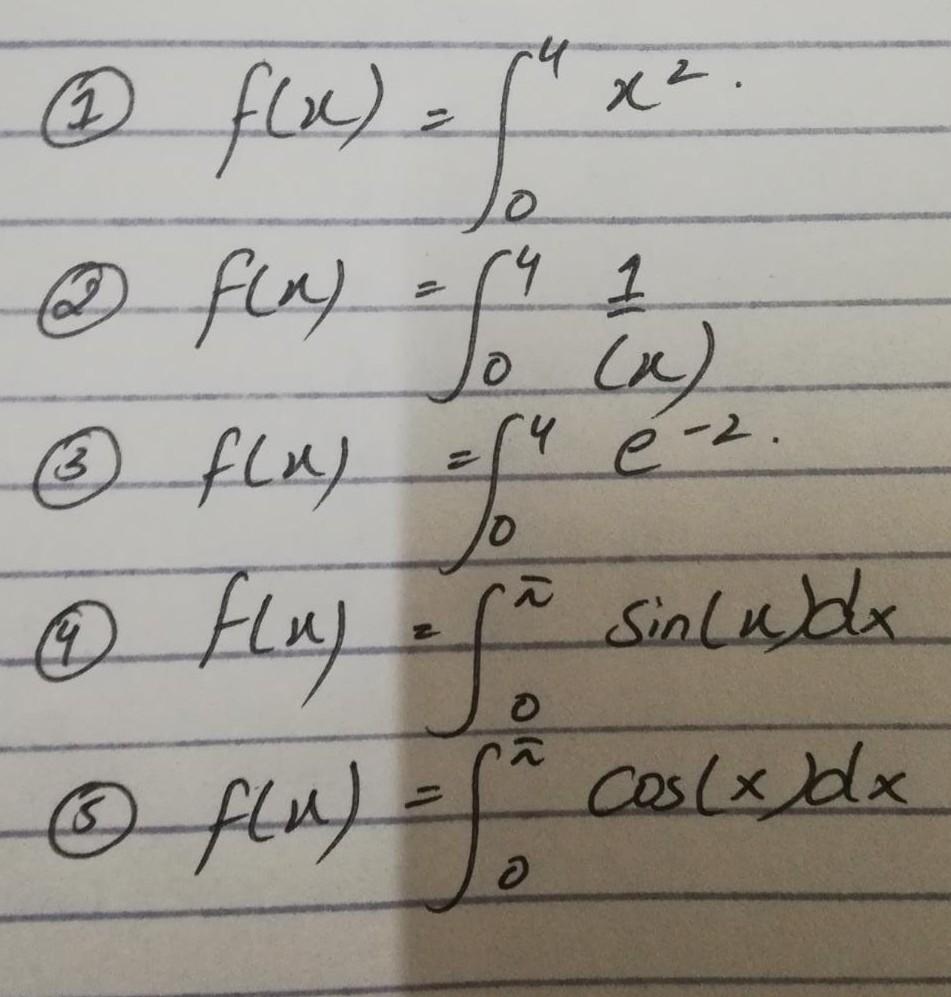 ① f(x) = ∫₀⁴ x².
② f(x) = ∫₀⁴ 1/(x)
③ f(x) = ∫₀⁴ e⁻².
④ f(x) = ∫₀^π sin(x)dx
⑤ f(x) = ∫₀^π cos(x)dx